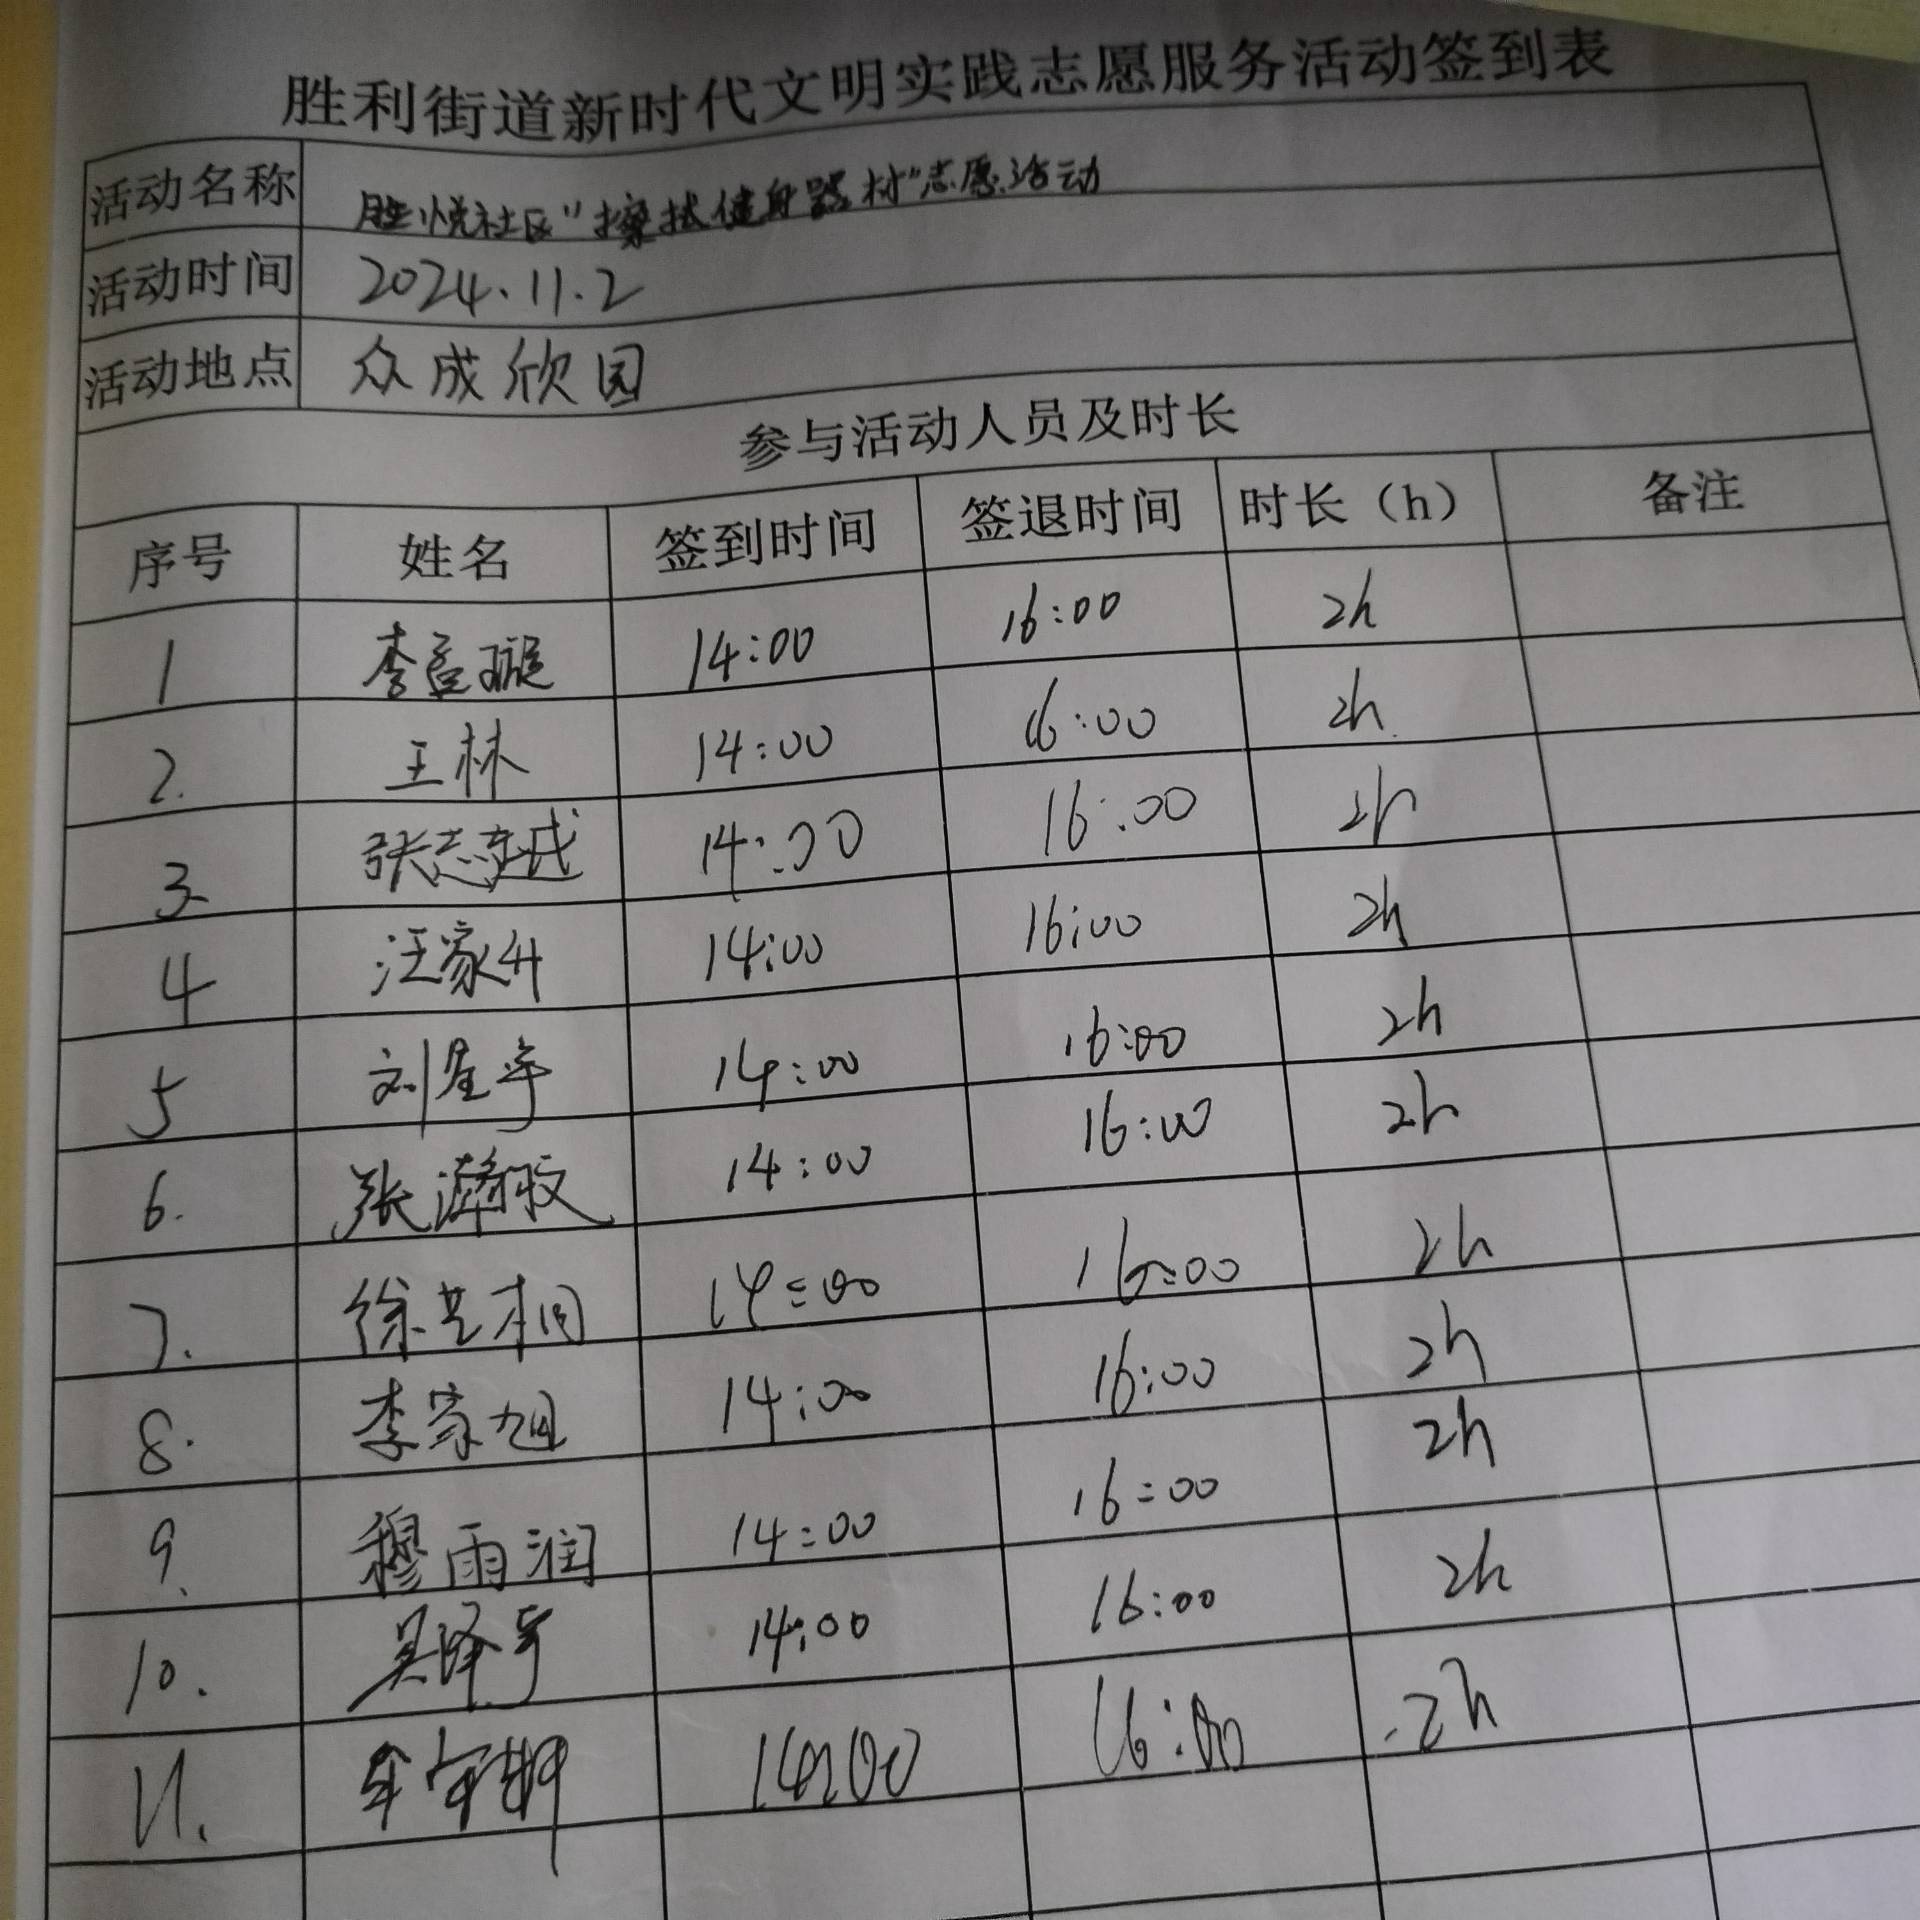 胜利街道新时代文明实践志愿服务活动签到表
活动名称 胜悦社区"擦拭健身器材"志愿活动
活动时间 2024.11.2
活动地点 众成欣园
参与活动人员及时长
序号 姓名 签到时间 签退时间 时长（h） 备注
1 李孟璇 14:00 16:00 2h
2. 王林 14:00 16:00 2h
3. 张志 14:00 16:00 2h
4 汪家升 14:00 16:00 2h
5 刘星宇 14:00 16:00 2h
6. 张瀚 14:00 16:00 2h
7. 徐艺桐 14:00 16:00 2h
8. 李家旭 14:00 16:00 2h
9. 穆雨润 14:00 16:00 2h
10. 吴泽宇 14:00 16:00 2h
11. 14:00 16:00 2h